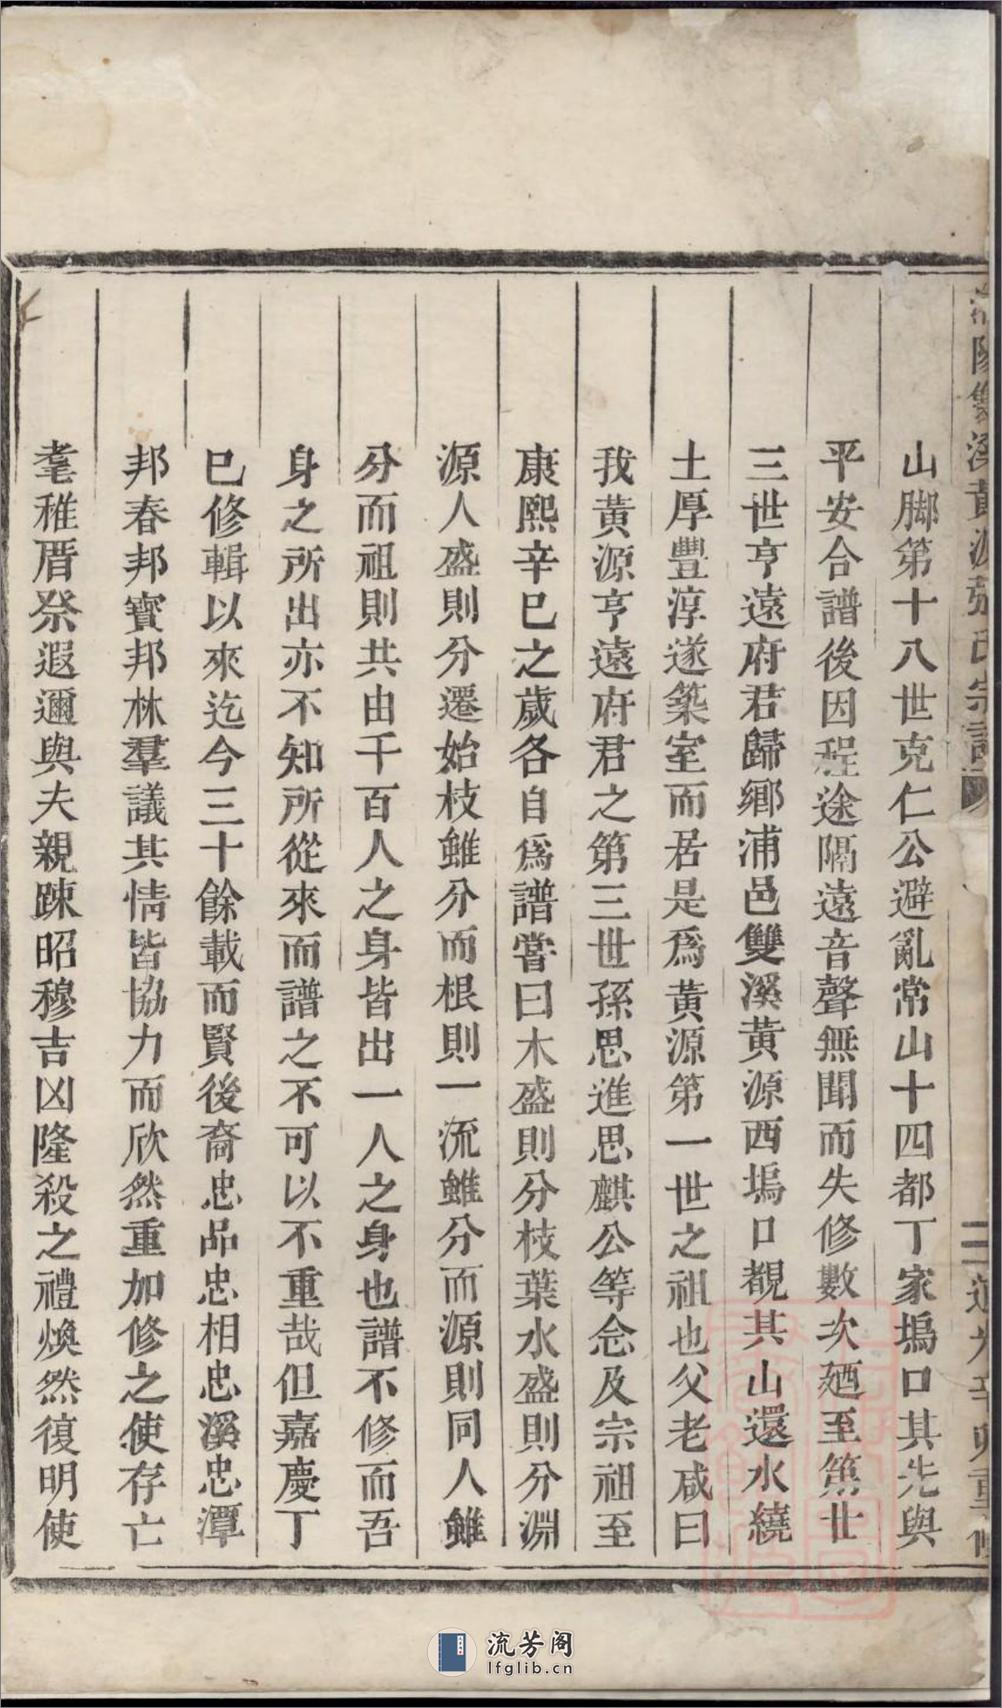 陽雙溪黃源張氏宗譜
二 道光辛卯重修
山脚第十八世克仁公避亂常山十四都丁家塢口其先與
平安合譜後因程途隔遠音聲無聞而失修數次廼至第廿
三世亨遠府君歸鄉浦邑雙溪黃源西塢口覩其山還水繞
土厚豐淳遂築室而居是爲黃源第一世之祖也父老咸曰
我黃源亨遠府君之第三世孫思進思麒公等念及宗祖至
康熙辛巳之歲各自爲譜嘗曰木盛則分枝葉水盛則分淵
源人盛則分遷始枝雖分而根則一流雖分而源則同人雖
分而祖則共由千百人之身皆出一人之身也譜不修而吾
身之所出亦不知所從來而譜之不可以不重哉但嘉慶丁
巳修輯以來迄今三十餘載而賢後裔忠品忠相忠溪忠潭
邦春邦寶邦林羣議其情皆協力而欣然重加修之使存亡
耄稚厝祭遐邇與夫親踈昭穆吉凶隆殺之禮煥然復明使
流芳阁
lfglib.cn